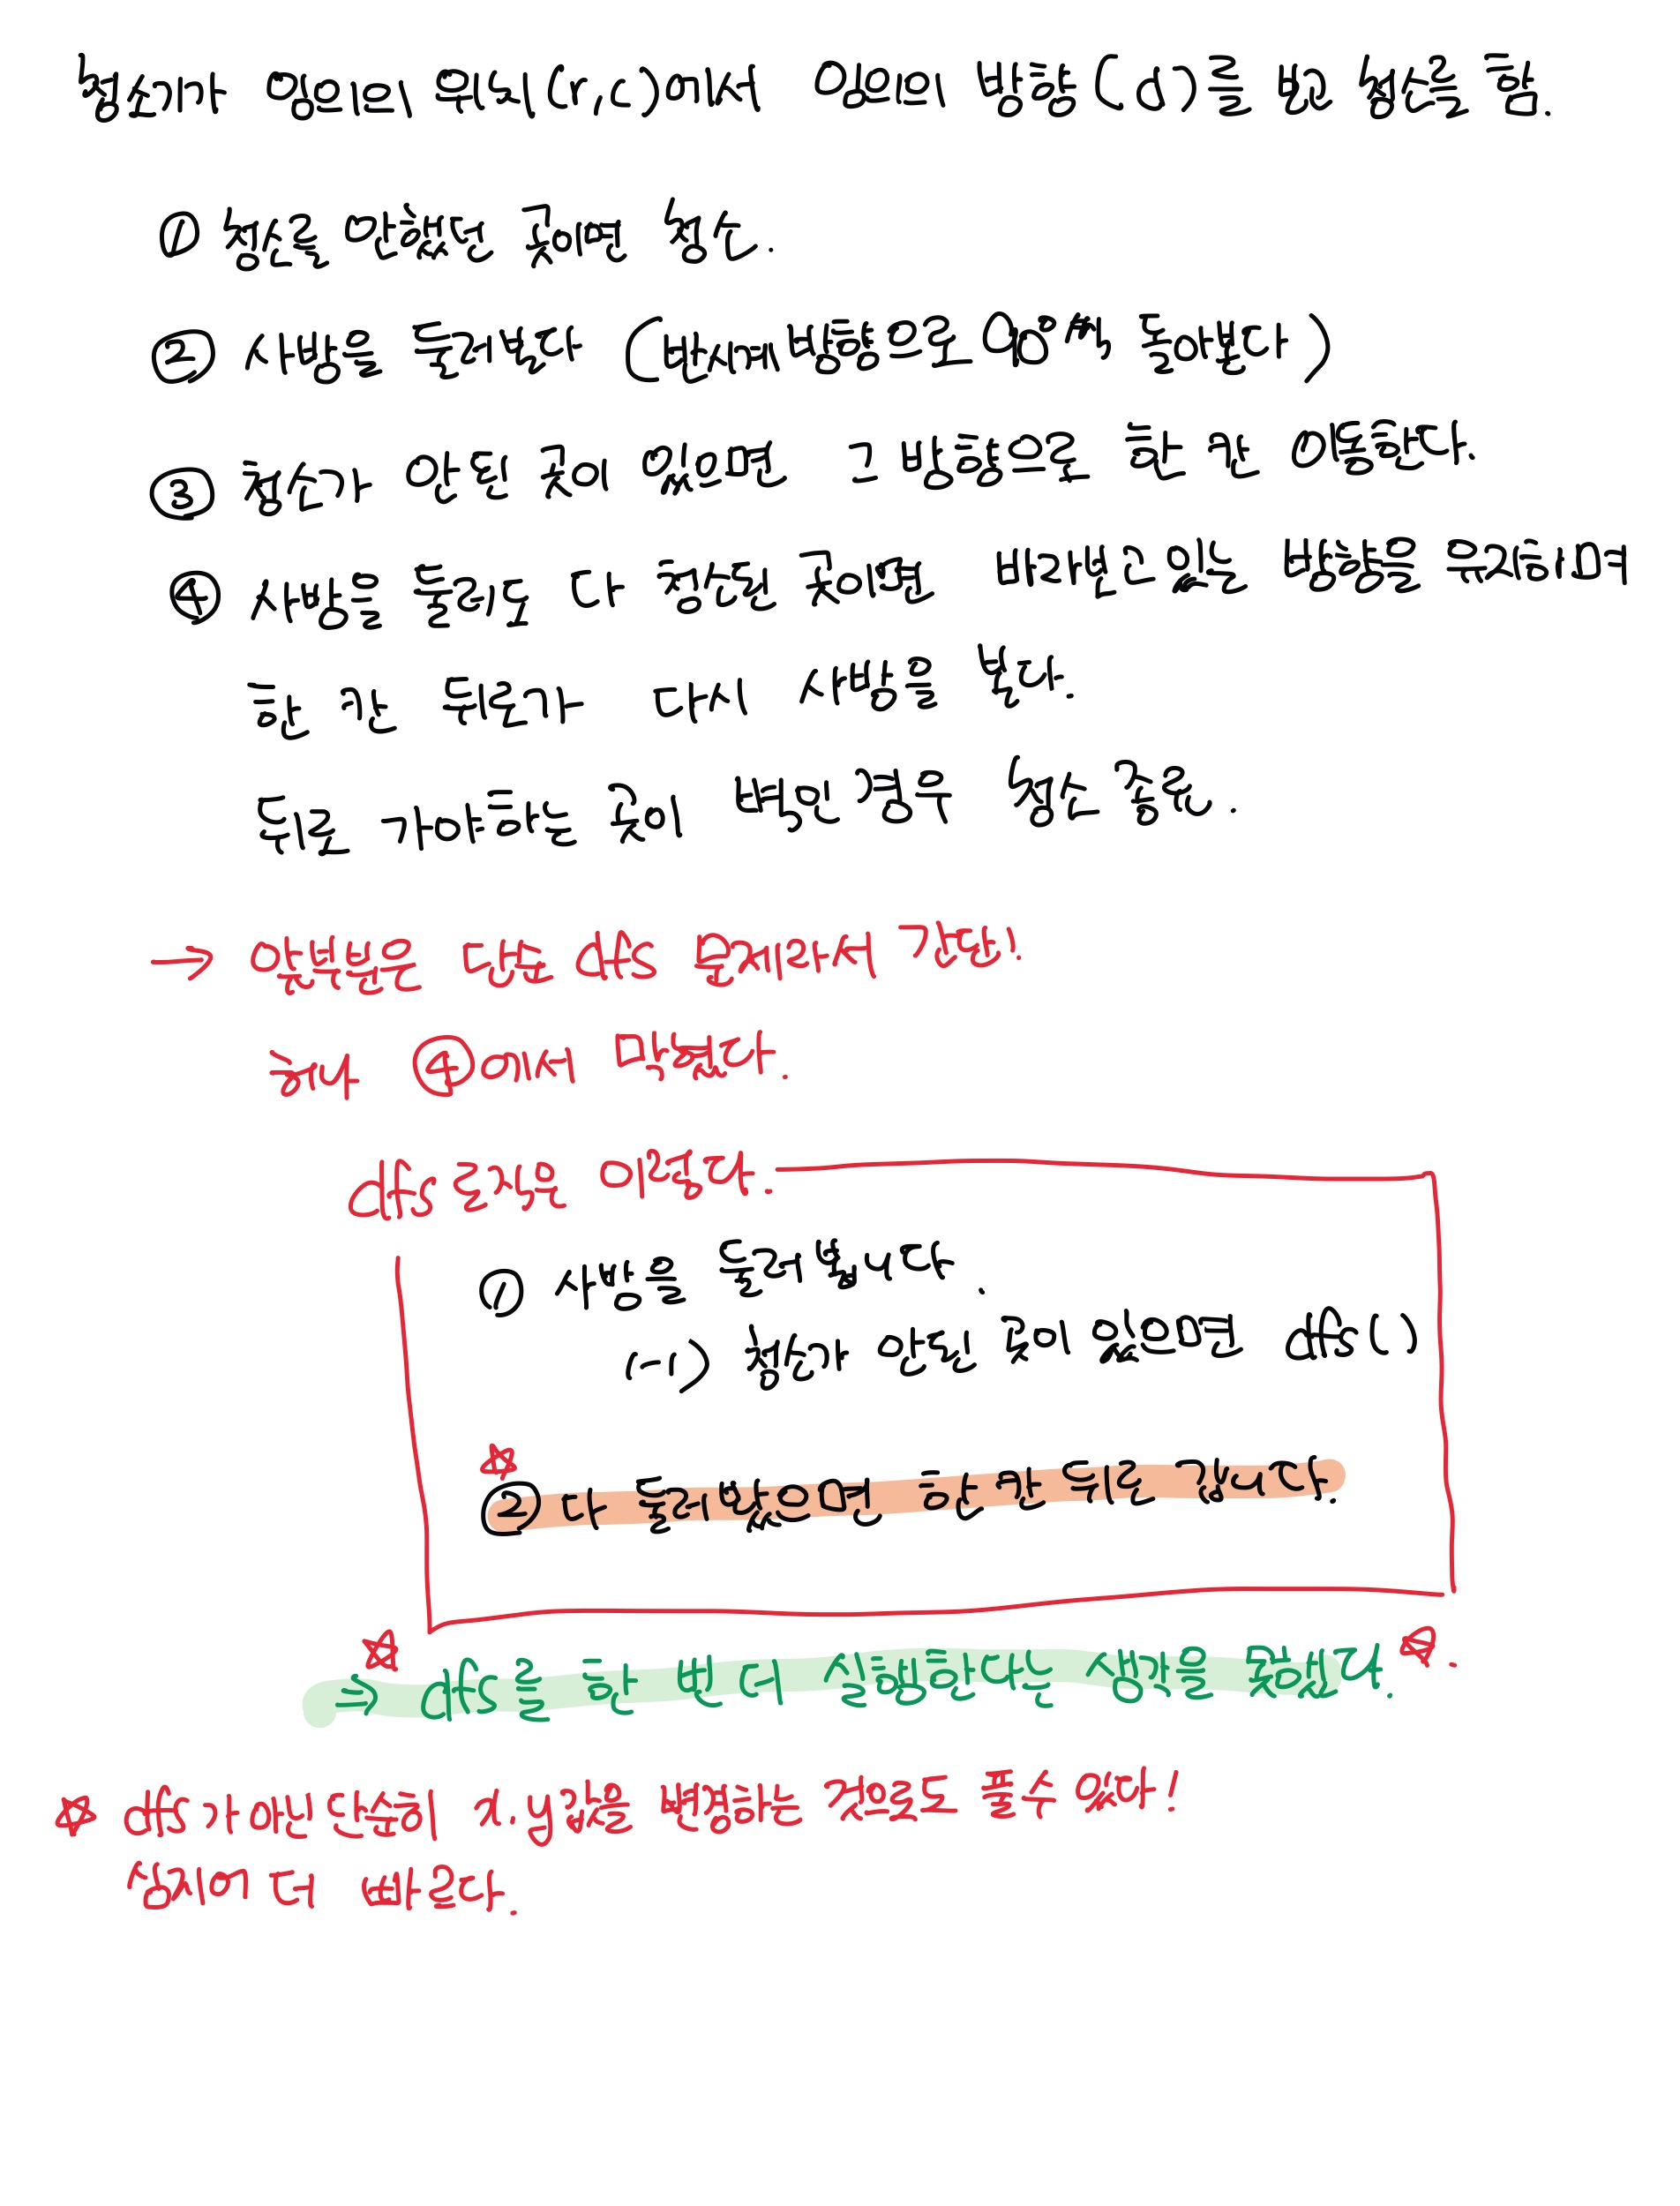 청소기가 임의의 위치(r,c)에서 임의의 방향(d)를 보고 청소를 함.
① 청소를 안했던 곳이면 청소.
② 사방을 둘러본다 (반시계방향으로 90°씩 돌아본다)
③ 청소가 안된 곳이 있으면 그 방향으로 한 칸 이동한다.
④ 사방을 둘러도 다 청소된 곳이면 바라보고 있는 방향을 유지하며
한 칸 뒤로가 다시 사방을 본다.
뒤로 가야하는 곳이 벽인 경우 청소 종료.
→ 앞부분은 단순 dfs 문제라서 간단!
허나 ④에서 막혔다.
dfs 로직은 이렇다.
① 사방을 둘러봅니다.
(-1) 청소가 안된 곳이 있으면 dfs()
☆
② 다 둘러봤으면 한 칸 뒤로 갑니다.
☆ ⇒ dfs를 한 번 더 실행한다는 생각을 못했다. ☆.
☆ dfs가 아닌 단순히 x,y값을 변경하는 것으로도 풀수 있다!
심지어 더 빠르다.